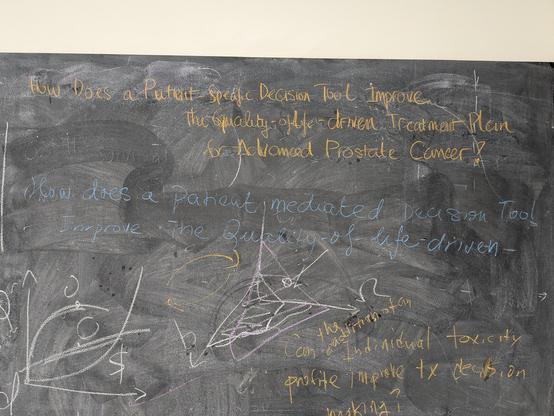 How Does a Patient Specific Decision Tool Improve
the Quality-of-life-driven Treatment Plan
for Advanced Prostate Cancer?
How does a patient mediated Decision Tool
Improve The Quality-of life-driven-
Can Individual toxicity
profile improve tx decision
making?